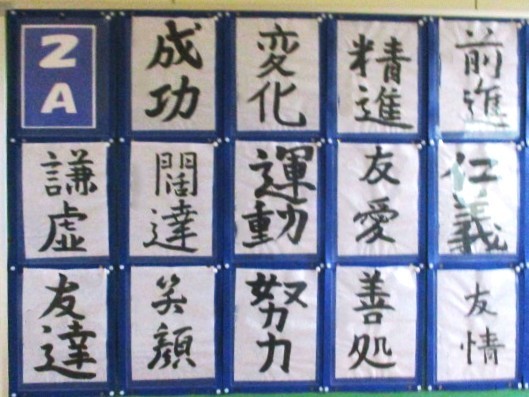 2
A
成功
変化
精進
前進
謙虚
闊達
運動
友愛
仁義
友達
笑顔
努力
善処
友情